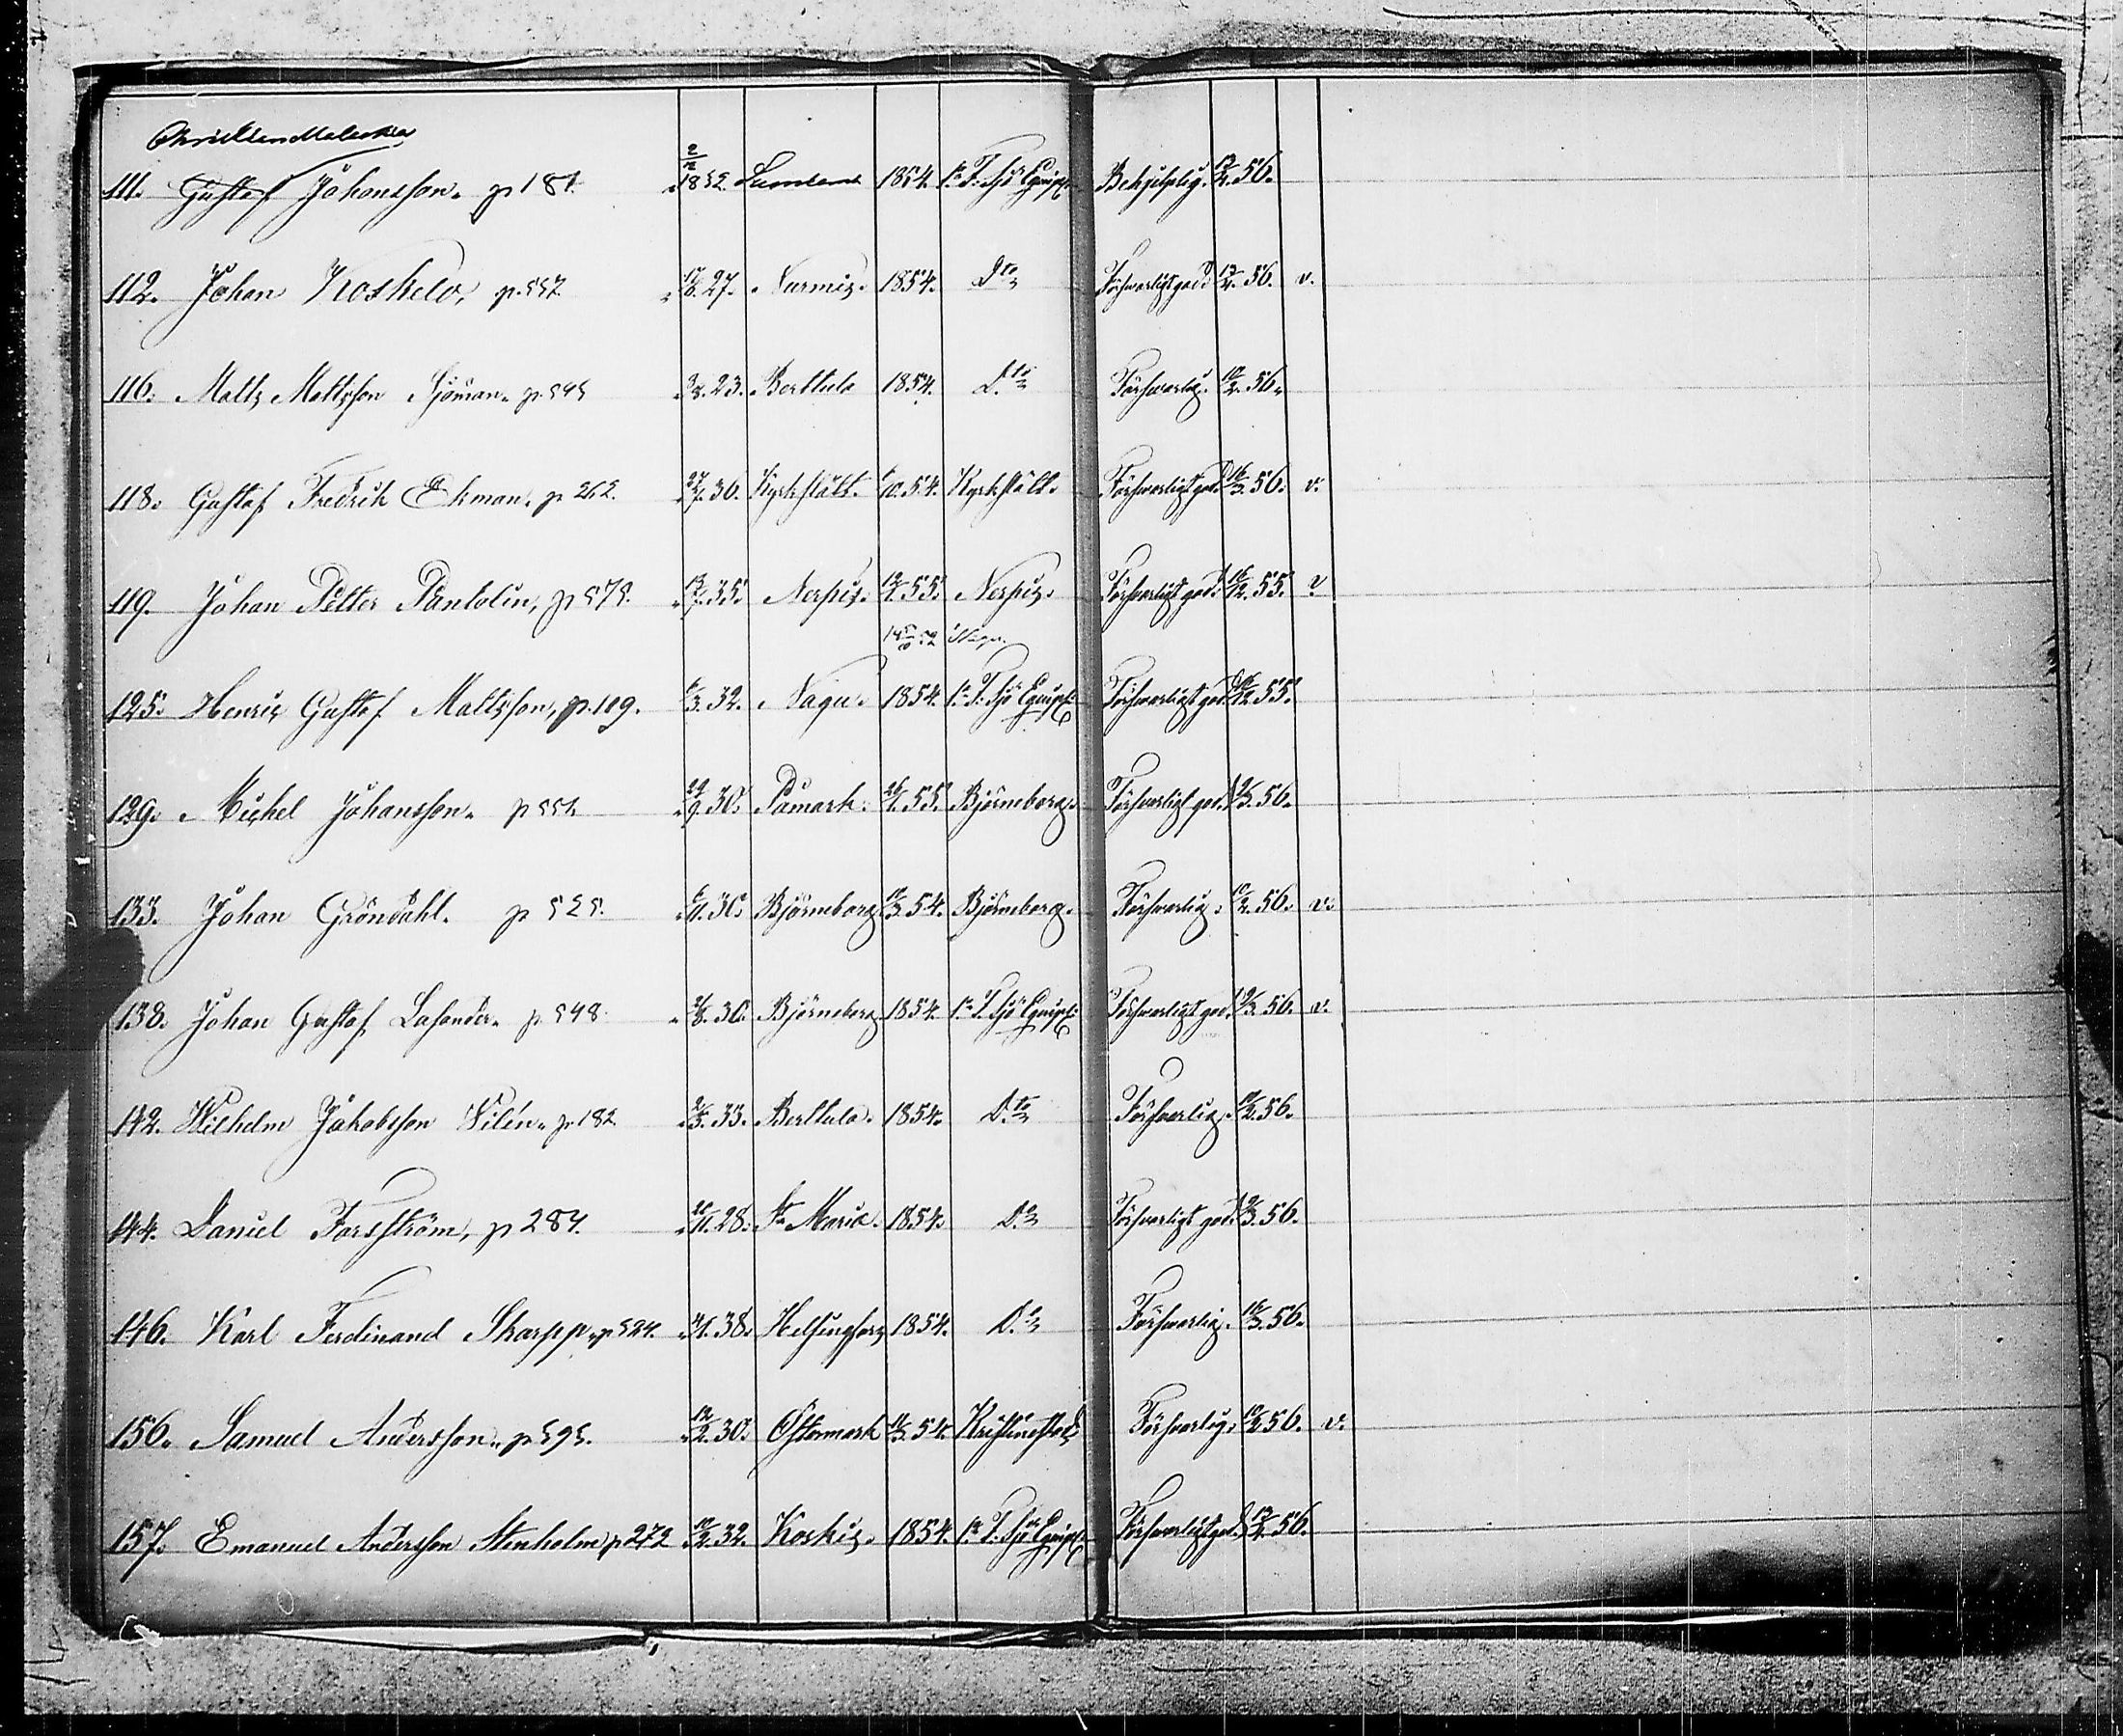 111. Gustaf Johansson. p 181. 2/12 1832. Lumland 1854. 1a F: Sjö Equip: Behjelplig. 13/4. 56.
112. Johan Koskelo, p. 557. 17/6. 27. Nurmis. 1854. Dto Försvarligt god. 13/4. 56. v.
116. Matts Mattsson Sjöman. p. 595 3/8. 23. Berttula 1854. Dto Försvarlig. 10/2. 56.
118. Gustaf Fredrik Ekman. p 262. 27/7. 30. Kyrkslätt. 1/10. 54. Kyrkslätt. Försvarligt god. 16/3. 56. v.
119. Johan Petter Pantolin, p 579. 13/7. 35. Nerpis. 12/4. 55. Nerpis. Försvarligt god. 16/12. 55. v
Nagu.
125. Henric Gustaf Mattsson, p. 109. 6/3. 32. Nagu. 1854. 1a F: Sjö Equip: Försvarligt god. 12. 55.
129. Michel Johansson. p 551. 29/9. 30. Påmark. 26/4. 55. Björneborg. Försvarligt god. 9/3. 56.
133. Johan Gröndahl. p 525. 6/11. 30. Björneborg 18/3. 54. Björneborg. Försvarlig. 10/2. 56. v.
138. Johan Gustaf Lasander. p. 548. 2/8. 30. Björneborg 1854. 1a F: Sjö Equip: Försvarligt god. 9/3. 56. v.
142. Wilhelm Jakobsson Vilén. p. 182. 2/5. 33. Berttula. 1854. Dto Försvarlig. 10/2. 56.
144. Daniel Forsström, p 287. 20/11. 28. St Marie. 1854. Do Försvarligt god. 9/3. 56.
146. Karl Ferdinand Skarpp. p 524. 4/1. 38. Helsingfors 1854. Do Försvarlig. 16/3. 56.
156. Samuel Andersson. p 595. 12/2. 30. Östermark 11/3. 54. Kristinestad Försvarlig. 10/2 56. v.
157. Emanuel Andersson Stenholm p 272 10/2. 32. Koskis. 1854. 1a F: Sjö Equip: Försvarligt god. 13/4. 56.